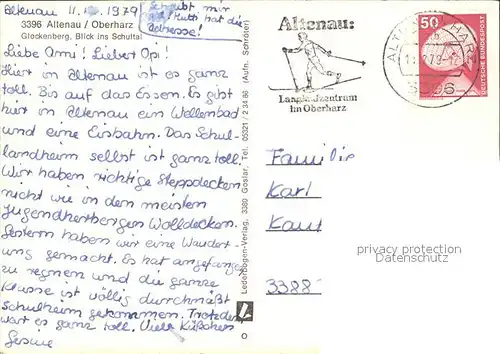 Altenau 11. 1979
Schreibt mir
Mutti hat die
Adresse!
3396 Altenau / Oberharz
Glockenberg, Blick ins Schultal
Liebe Omi! Lieber Opi!
Hier in Altenau ist es ganz
toll. Bis auf das Essen. Es gibt
hier in Altenau ein Wellenbad
und eine Eisbahn. Das Schul-
landheim selbst ist ganz toll.
Wir haben richtige Steppdecken
nicht wie in den meisten
Jugendherbergen Wolldecken.
Gestern haben wir eine Wander-
ung gemacht. Es hat angefangen
zu regnen und die ganze
Klasse ist völlig durchnäßt
Schulheim gekommen. Trotzdem
war es ganz toll. Viele Küßchen
Gesine
Lederbogen-Verlag, 3380 Goslar, Tel. 05321 / 2 34 86 (Aufn. Schröter)
Altenau:
Langlaufzentrum
im Oberharz
50
DEUTSCHE BUNDESPOST
3396
Familie
Karl
Kau
3388
privacy protection
Datenschutz